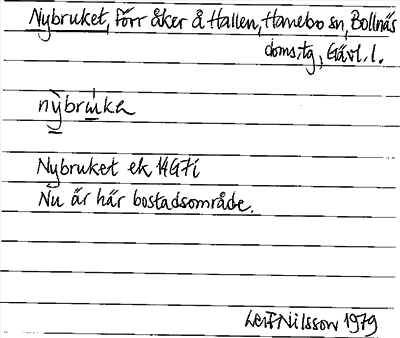 Nybruket, förr åker å Hallen, Hanebo sn, Bollnäs
doms.tg, Gävl. l.
nybruka
Nybruket ek 14G7i
Nu är här bostadsområde.
Leif Nilsson 1979